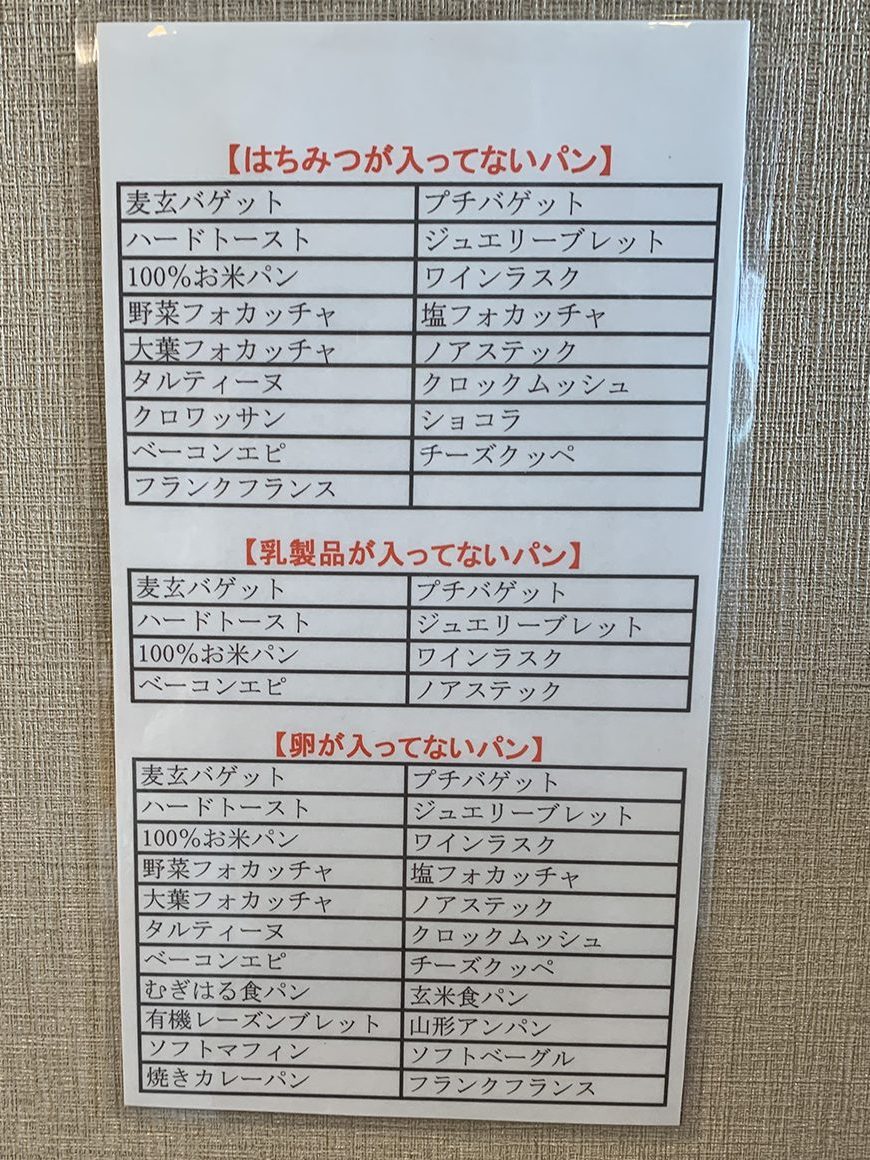 【はちみつが入ってないパン】
麦玄バゲット プチバゲット
ハードトースト ジュエリーブレット
100%お米パン ワインラスク
野菜フォカッチャ 塩フォカッチャ
大葉フォカッチャ ノアステック
タルティーヌ クロックムッシュ
クロワッサン ショコラ
ベーコンエピ チーズクッペ
フランクフランス
【乳製品が入ってないパン】
麦玄バゲット プチバゲット
ハードトースト ジュエリーブレット
100%お米パン ワインラスク
ベーコンエピ ノアステック
【卵が入ってないパン】
麦玄バゲット プチバゲット
ハードトースト ジュエリーブレット
100%お米パン ワインラスク
野菜フォカッチャ 塩フォカッチャ
大葉フォカッチャ ノアステック
タルティーヌ クロックムッシュ
ベーコンエピ チーズクッペ
むぎはる食パン 玄米食パン
有機レーズンブレット 山形アンパン
ソフトマフィン ソフトベーグル
焼きカレーパン フランクフランス